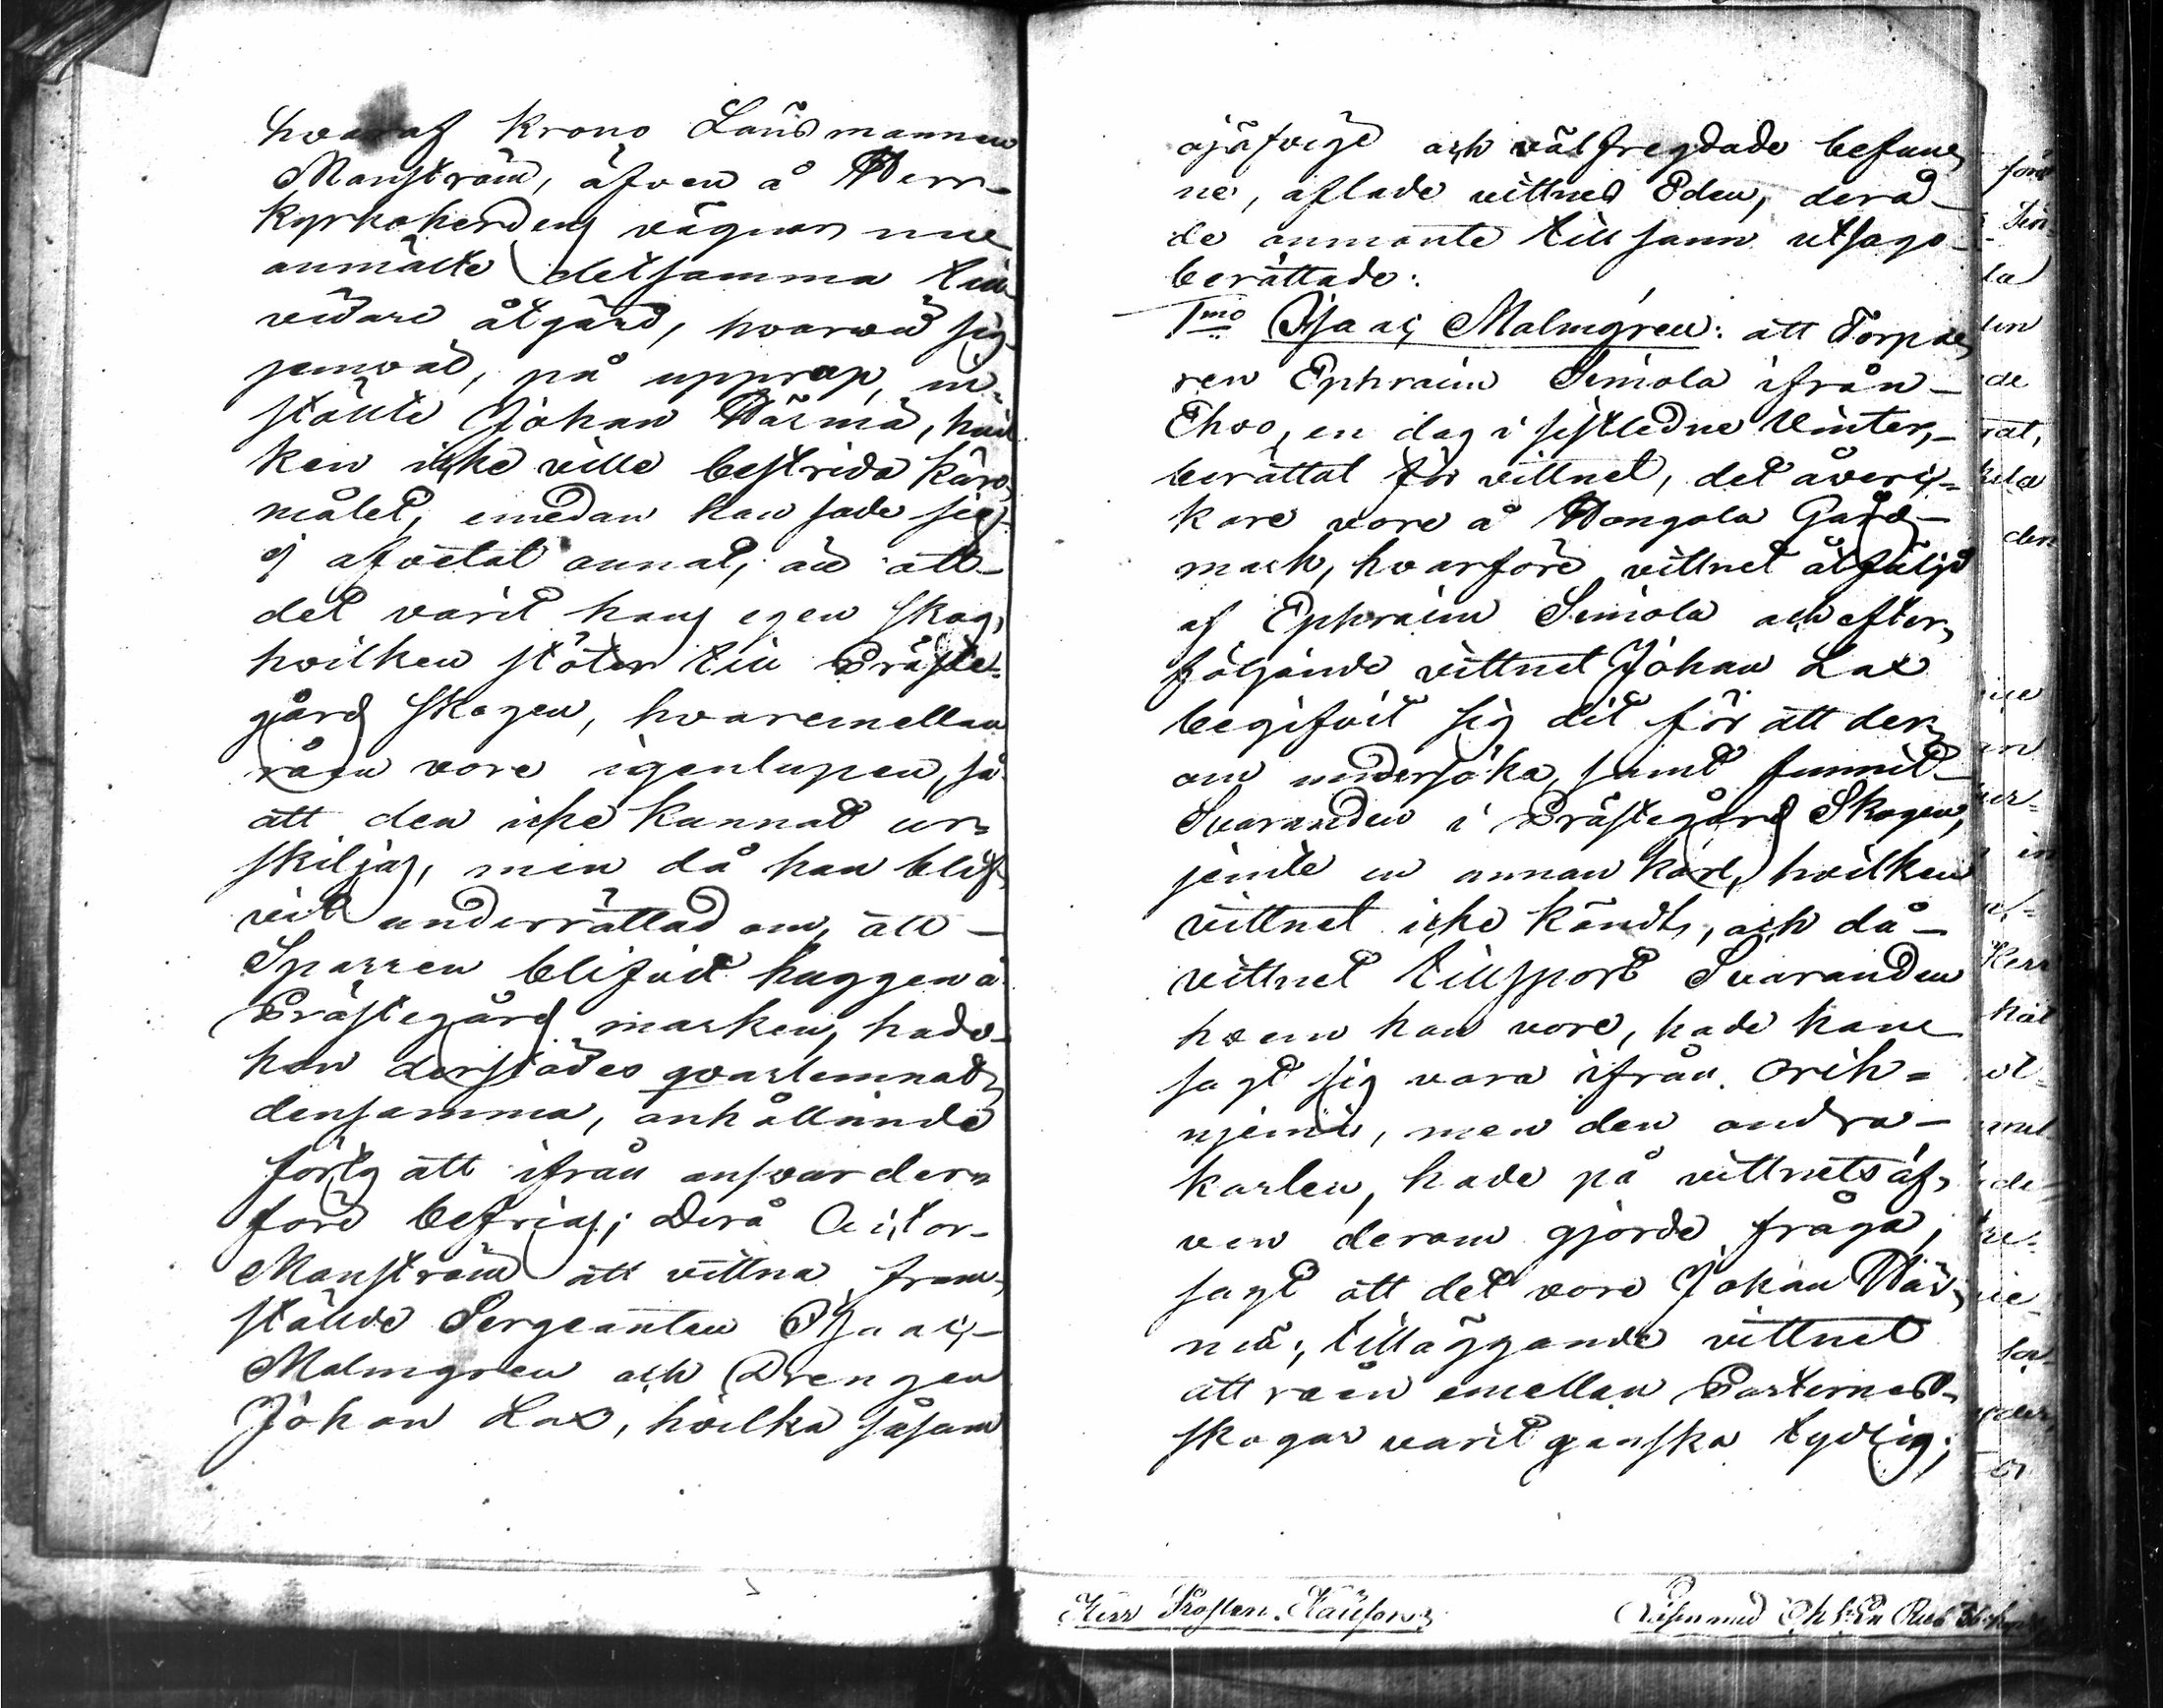 hvaraf Krono Länsmannen
Manström, äfven å Herr
Kyrkoherdens vägnar nu
anmälte detsamma till
vidare åtgärd, hvarvid sig
jemväl, på upprop, in-
stälte Johan Wärmä, hvil
ken icke ville bestrida käro-
målet, emedan han sade sig
ej afvetat annat, än att
det varit hans egen skog,
hvilken stöter till Präste-
gårds skogen, hvaremellan
råen vore igenlupen, så
att den icke kunnat ur-
skiljas, men då han blif-
vit underrättad om, att
Sparren blifvit huggen å
Prästegårds marken, hade
han derstädes qvarlemnat
densamma, anhållande
förty att ifrån ansvar der-
före befrias; Derå Actor
Manström att vittna fram-
stälde Sergeanten Isaac
Malmgren och Drengen
Johan Lax, hvilka såsom
ojäfvige och välfrejdade befun-
ne, aflade vittnes Eden, derå
de anmante till sann utsago
berättade:
1mo Isaac Malmgren: att Torpa-
ren Ephraim Simola ifrån
Ehoo, en dag i sistledne Vinter,
berättat för vittnet, det åver-
kare vore å Wongola Gårds
mark, hvarföre vittnet åtföljd
af Ephraim Simola och efter-
följande vittnet Johan Lax
begifvit sig dit för att der-
om undersöka, samt funnit
Svaranden i Prästegårds Skogen,
jemte en annan karl, hvilken
vittnet icke kändt, och då
vittnet tillsport Svaranden
hvem han vore, hade han
sagt sig vara ifrån Orih-
njemi, men den andra
karlen, hade på vittnets äf-
ven derom gjorde fråga,
sagt att det vore Johan Wär-
mä; tilläggande vittnet
att råen emellan Parternes
skogar varit ganska tydlig;
Herr Prosten